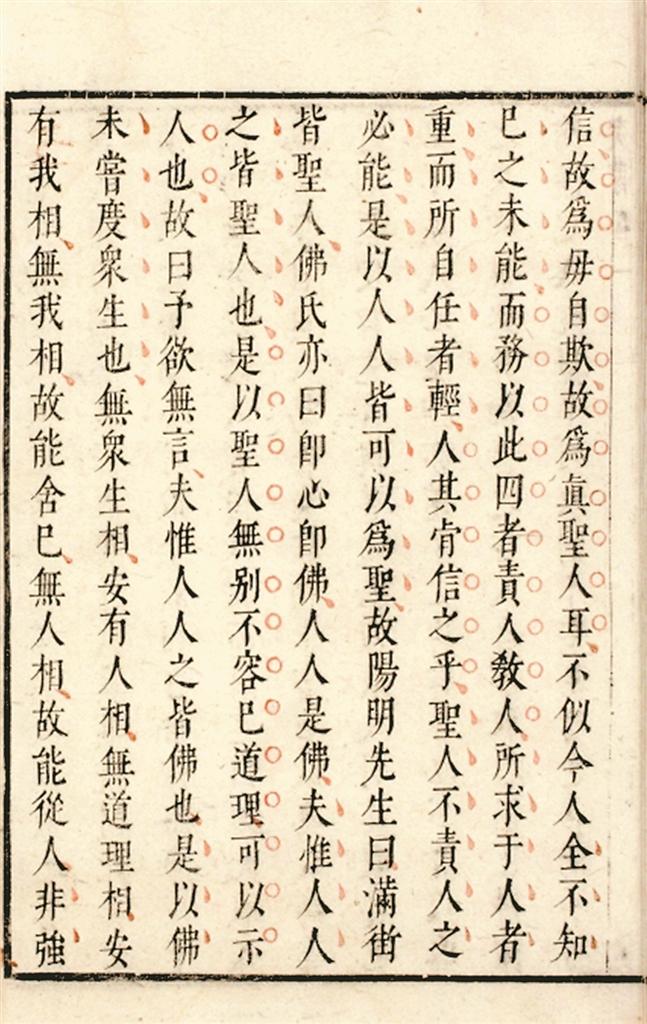 信故爲毋自欺故爲真聖人耳不似今人全不知
已之未能而務以此四者責人敎人所求于人者
重而所自任者輕人其肯信之乎聖人不責人之
必能是以人人皆可以爲聖故陽明先生曰滿街
皆聖人佛氏亦曰卽心卽佛人人是佛夫惟人人
之皆聖人也是以聖人無别不容已道理可以示
人也故曰予欲無言夫惟人人之皆佛也是以佛
未嘗度衆生也無衆生相安有人相無道理相安
有我相無我相故能舍已無人相故能從人非強